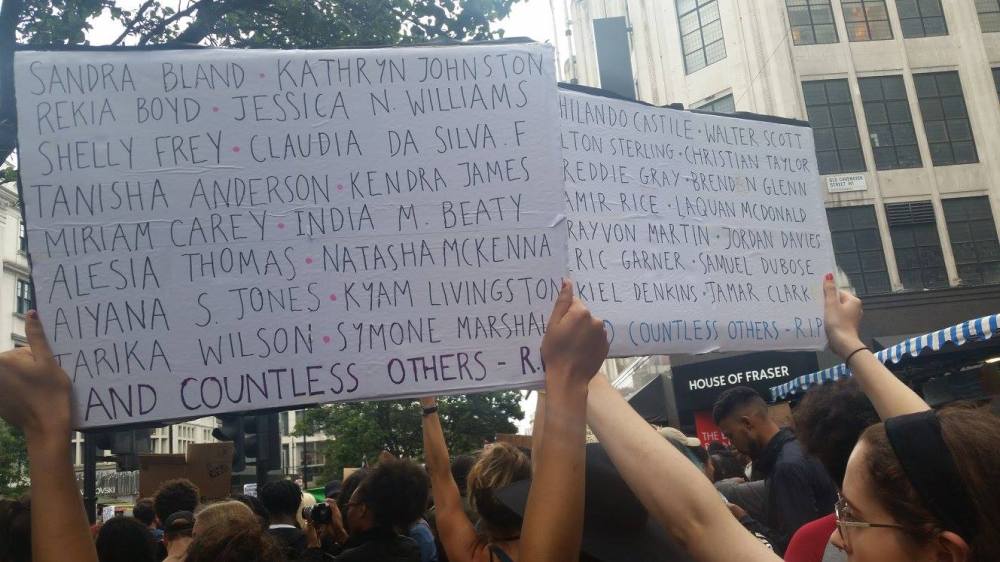 SANDRA BLAND • KATHRYN JOHNSTON
REKIA BOYD • JESSICA N. WILLIAMS
SHELLY FREY • CLAUDIA DA SILVA.F
TANISHA ANDERSON • KENDRA JAMES
MIRIAM CAREY • INDIA M. BEATY
ALESIA THOMAS • NATASHA MCKENNA
AIYANA S. JONES • KYAM LIVINGSTON
TARIKA WILSON • SYMONE MARSHAL
AND COUNTLESS OTHERS - R.I
HILANDO CASTILE • WALTER SCOTT
LTON STERLING • CHRISTIAN TAYLOR
REDDIE GRAY • BRENDON GLENN
AMIR RICE • LAQUAN MCDONALD
RAYVON MARTIN • JORDAN DAVIES
RIC GARNER • SAMUEL DUBOSE
KIEL DENKINS • JAMAR CLARK
D COUNTLESS OTHERS - R.I.P
OLD CAVENDISH
STREET W1
HOUSE OF FRASER
THE